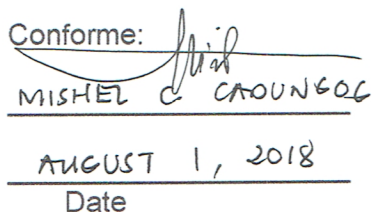 Conforme:
MISHEL C CAOUNGOG
AUGUST 1, 2018
Date